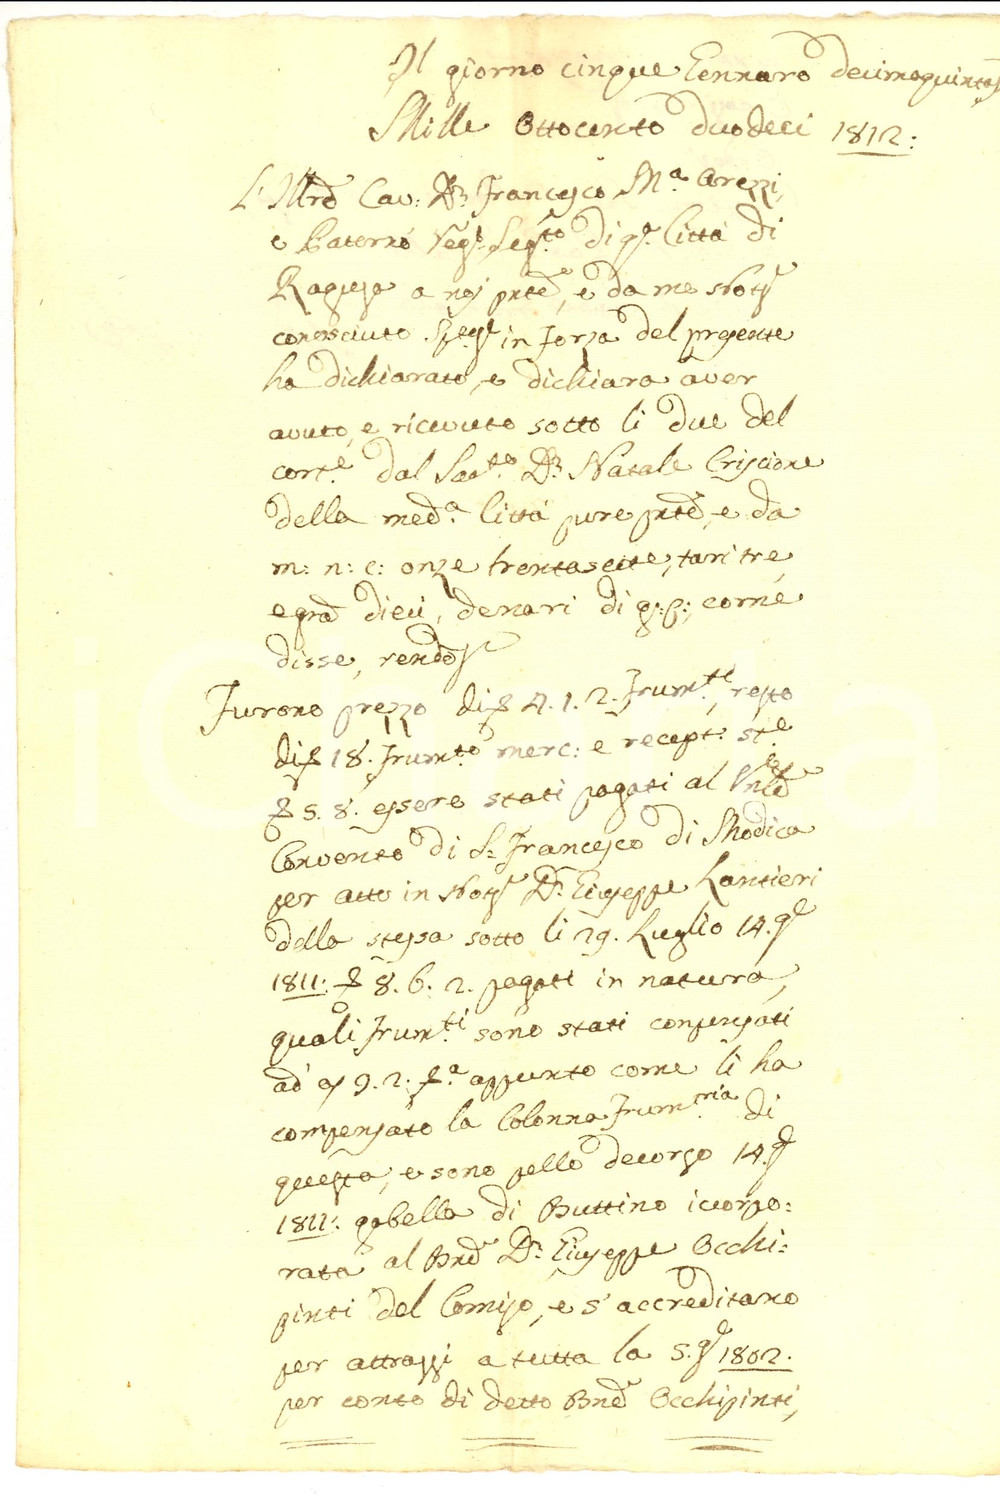 Il giorno cinque Gennaro decimaquinta
Mille Ottocento duodeci 1812:
L'Ill.re Cav: D.n Francesco M.a Arezzi,
e Paternò di q.a Città di
Ragusa a noj pnte, e da me Not.r
conosciuto in forza del presente
ha dichiarato, e dichiara aver
avuto, e ricevuto sotto li due del
cort.e dal Sac.te D.n Natale Criscione
della med.a Città pure pnte, e da
m: n: c: onze trentasette, tarì tre,
e grà dieci, denari di g: p:, come
disse, rendos
Furono prezzo di 4. 1. 2. Frum.ti, resto
di 18. Frum.to merc: e recept: st.e
5. 8. essere stati pagati al Vnle
Convento di S: Francesco di Modica
per atto in Not.r D.n Giuseppe Lantieri
della stessa sotto li 29. Luglio 14.
1811: 8. 6. 2. pagati in natura,
quali Frum.ti sono stati compensati
ad 9. 2. appunto come li ha
compensato la Colonna Frum.ria di
questa, e sono pello decorso 14.
1811: gabella di Buttino icorpo:
rata al Bne D.n Giuseppe Occhi:
pinti del Comiso, e s'accreditano
per attrassi a tutta la 5. 1802.
per conto di detto Bne Occhipinti,